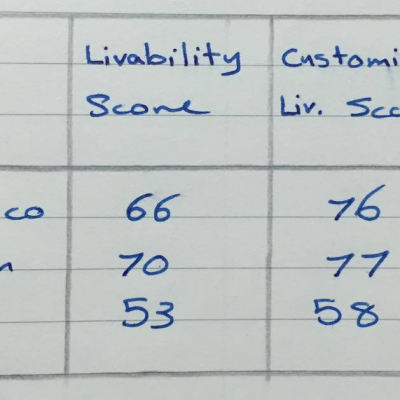 Livability Customi
Score Liv. Sco
co 66 76
n 70 77
53 58